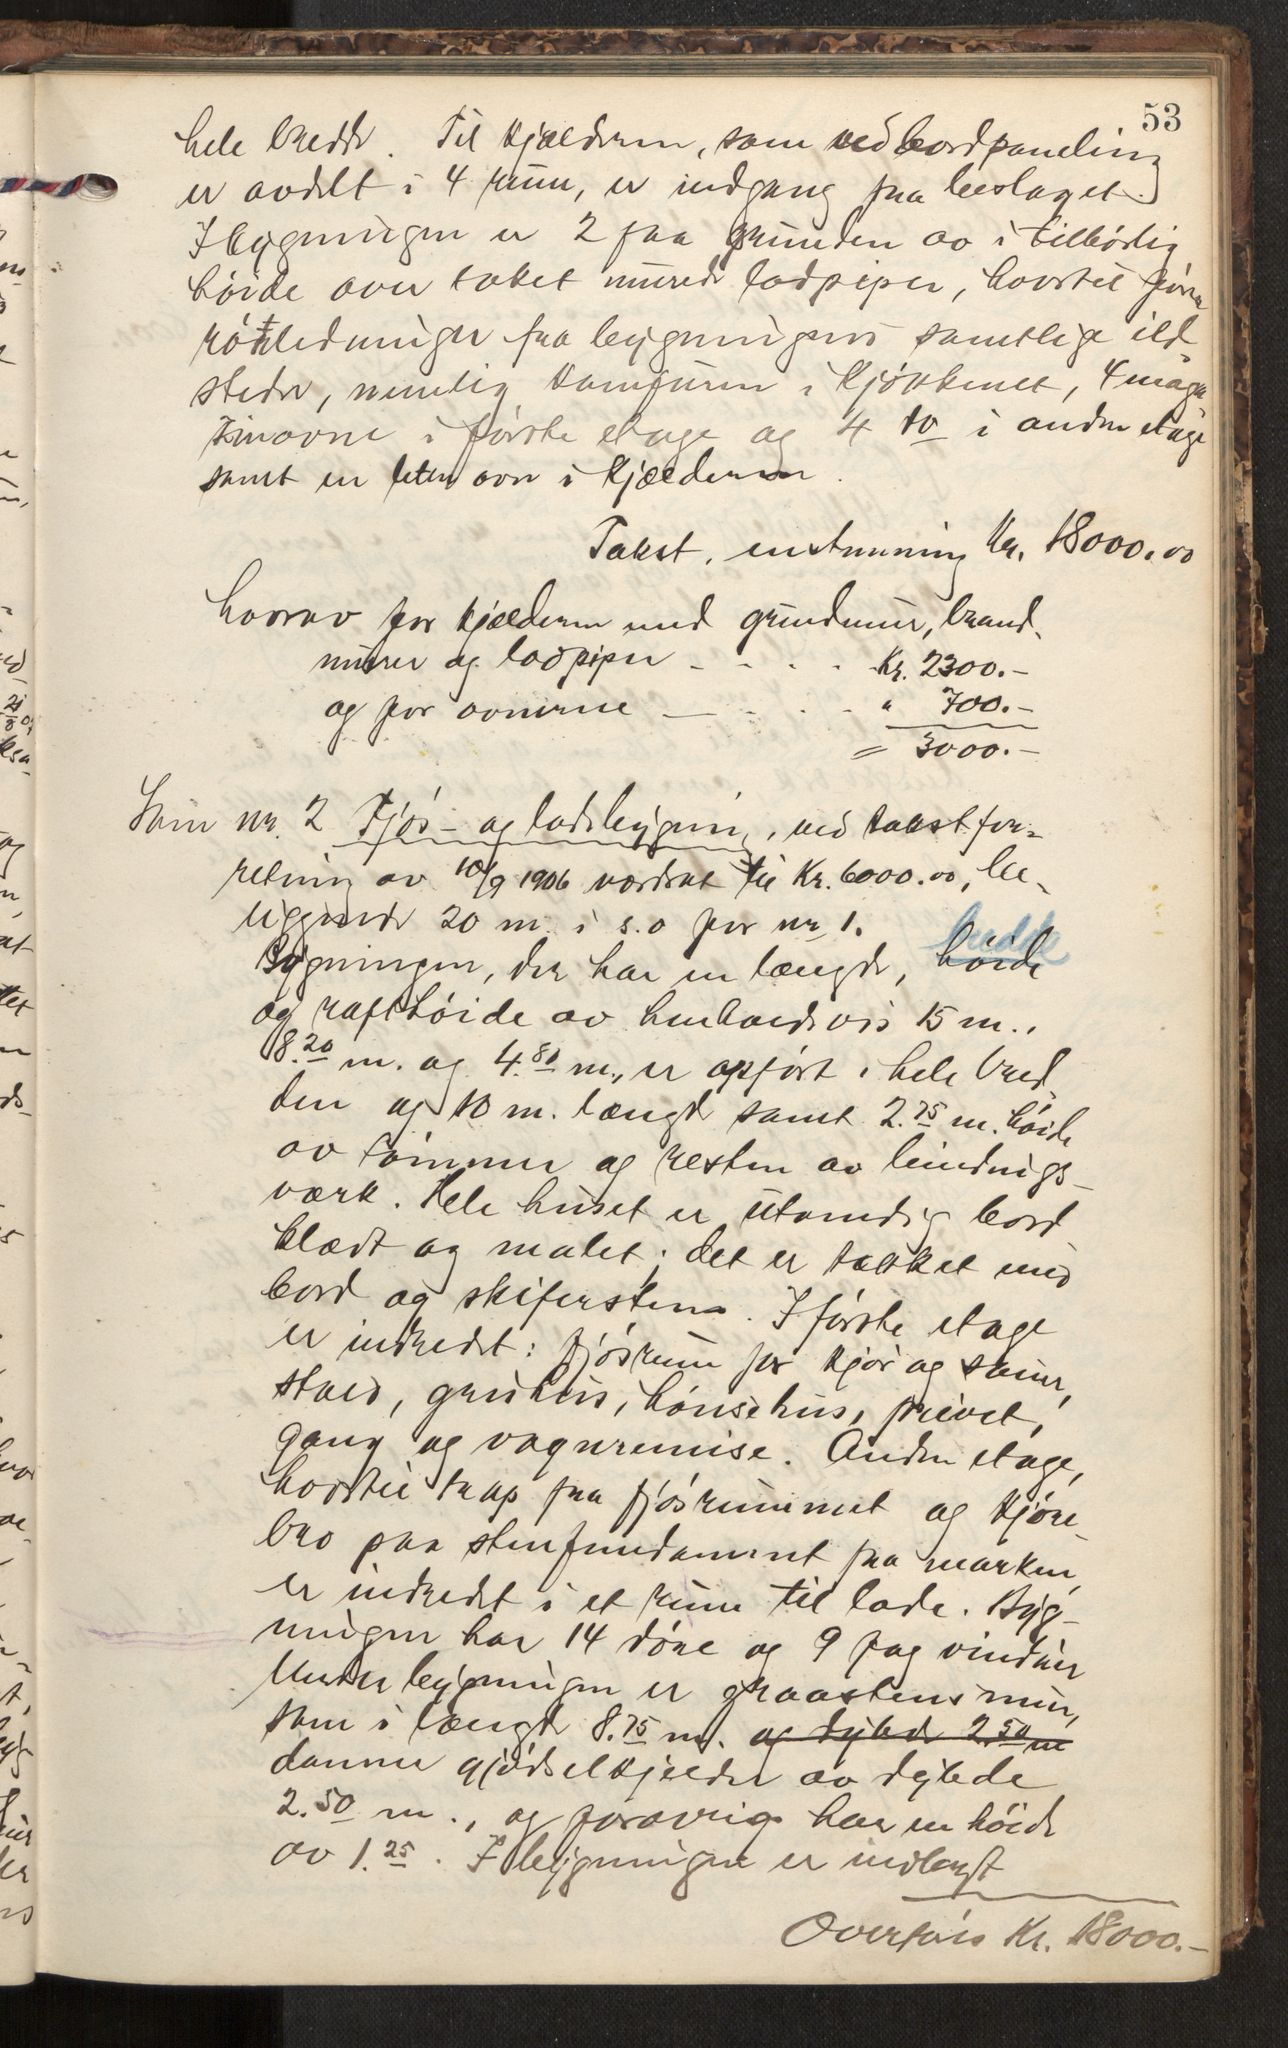 53
hele bredde. Til kjælderen, som ved bordpaneling
er avdelt i 4 rum, er indgang fra bislaget.
I bygningen er 2 fra grunden av i tilbørlig
høide over taket murede ladpiper, hvortil fører
rørledninger fra bygningens samtlige ild-
steder, nemlig komfuren i kjøkkenet, 4 maga-
zinovne i første etage og 4 do i anden etage
samt en liten ovn i kjælderen.
Takst, enstemmig Kr. 18000.00
hvorav for kjælderen med grundmur, brand-
murer og ladpiper - - - - Kr. 2300.-
og for ovnerne - - - - " 700.-
= 3000.-
Som nr. 2 Fjøs- og ladebygning, ved takstfor-
retning av 10/9 1906 værdsat til Kr. 6000.00, be-
liggende 20 m. i s.o for nr. 1.
bredde
Bygningen, der har en længde, høide
og rafthøide av henholdsvis 15 m.,
8.20 m. og 4.80 m., er opført i hele bred-
den og 10 m. længde samt 2.75 m. høide
av tømmer og resten av bindings-
værk. Hele huset er utvendig bord-
klædt og malet; det er tækket med
bord og skifersten. I første etage
er indredet: fjøsrum for kjør og sauer,
stald, grishus, hønsehus, privet,
gang og vognremise. Anden etage,
hvortil trap fra fjøsrummet og kjøre-
bro paa stenfundament fra marken,
er indredet i et rum til lade. Byg-
ningen har 14 døre og 9 fag vinduer
Under bygningen er graastensmur,
som i længde 8.75 m. og dybde 2.50 m
danner gjødselkjelder av dybde
2.50 m., og forøvrig har en høide
av 1.25. I bygningen er indlagt
Overføres Kr. 18000.-